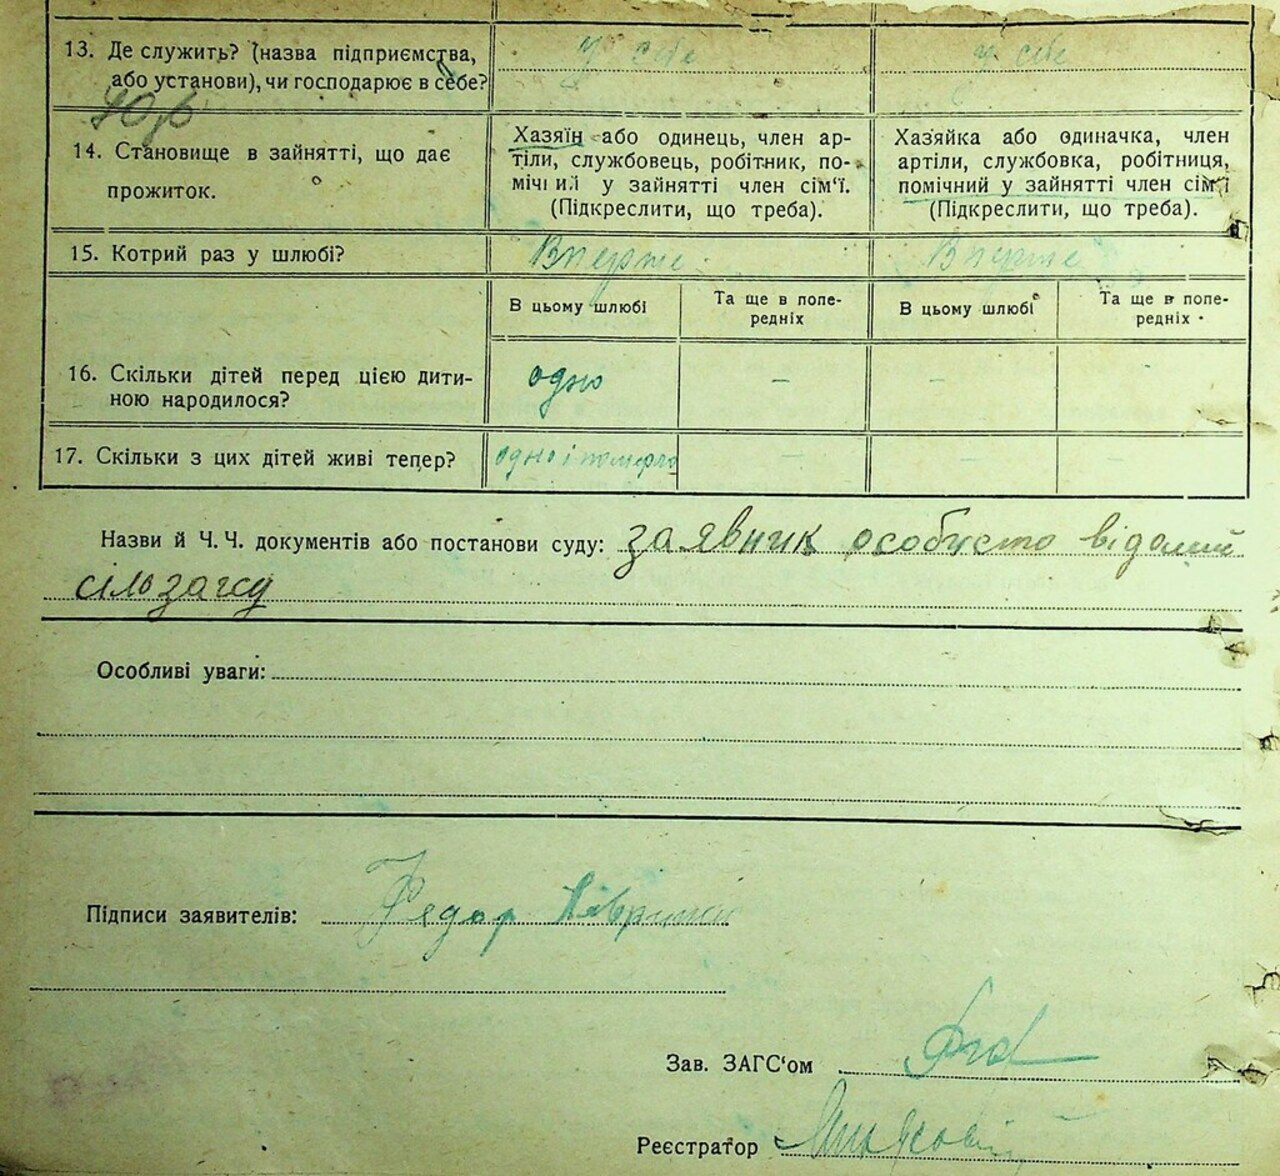 13. Де служить? (назва підприємства, у себе у себе
або установи), чи господарює в себе?
14. Становище в зайнятті, що дає прожиток.
Хазяїн або одинець, член ар-
тіли, службовець, робітник, по-
мічний у зайнятті член сім'ї.
(Підкреслити, що треба).
Хазяйка або одиначка, член
артіли, службовка, робітниця,
помічний у зайнятті член сім'ї
(Підкреслити, що треба).
15. Котрий раз у шлюбі? Вперше Вперше
В цьому шлюбі
Та ще в попе-
редніх
В цьому шлюбі
Та ще в попе-
редніх
16. Скільки дітей перед цією дити- одно — —
ною народилося?
17. Скільки з цих дітей живі тепер? одно і померло — — —
Назви й Ч. Ч. документів або постанови суду: заявник особисто відомий
сільзагсу
Особливі уваги:
Підписи заявителів: Федор
Зав. ЗАГС'ом
Реєстратор